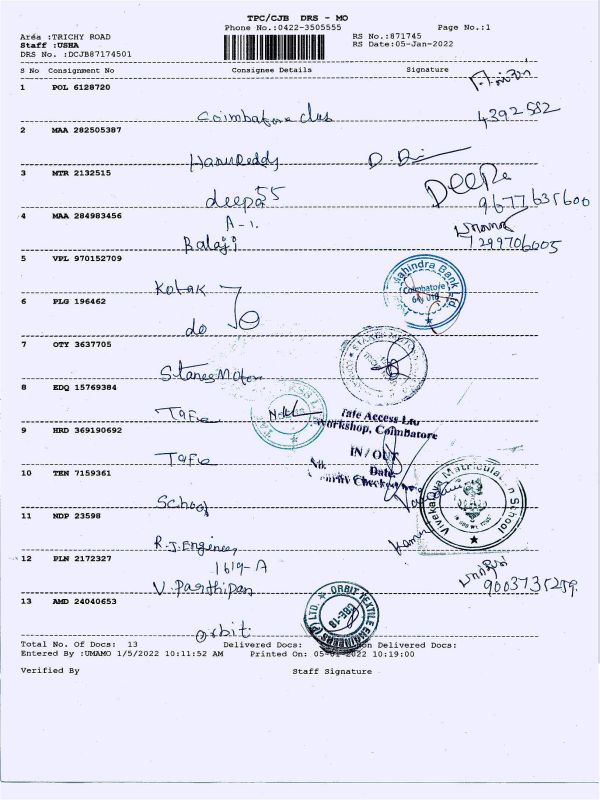 TPC/CJB DRS - MO
Phone No.:0422-3505555 Page No.:1
Area :TRICHY ROAD RS No.:871745
Staff :USHA RS Date:05-Jan-2022
DRS No. :DCJB87174501
S No Consignment No Consignee Details Signature
1 POL 6128720
Coimbatore club 4392552
2 MAA 282505387
HanuReddy
3 MTR 2132515
deepa 55 Deepa
9677635600
4 MAA 284983456
A-1.
Balaji 7299706005
5 VPL 970152709
Kotak Mahindra Bank Ltd Coimbatore
6 PLG 196462
do
7 OTY 3637705
Stanes Motor
8 EDQ 15769384
Tafe Tafe Access Ltd
Workshop, Coimbatore
9 HRD 369190692
IN / OUT
Tafe No. Date
Security Checked
10 TEN 7159361
School Vivekalaya Matriculation School
11 NDP 23598
R.J. Engineer
1619-A
12 PLN 2172327
V. Parthipan 9003735259.
13 AMD 24040653
orbit ORBIT TEXTILE ENGINEERS (P) LTD. CBE-18
Total No. Of Docs: 13 Delivered Docs: Non Delivered Docs:
Entered By :UMAMO 1/5/2022 10:11:52 AM Printed On: 05-01-2022 10:19:00
Verified By Staff Signature